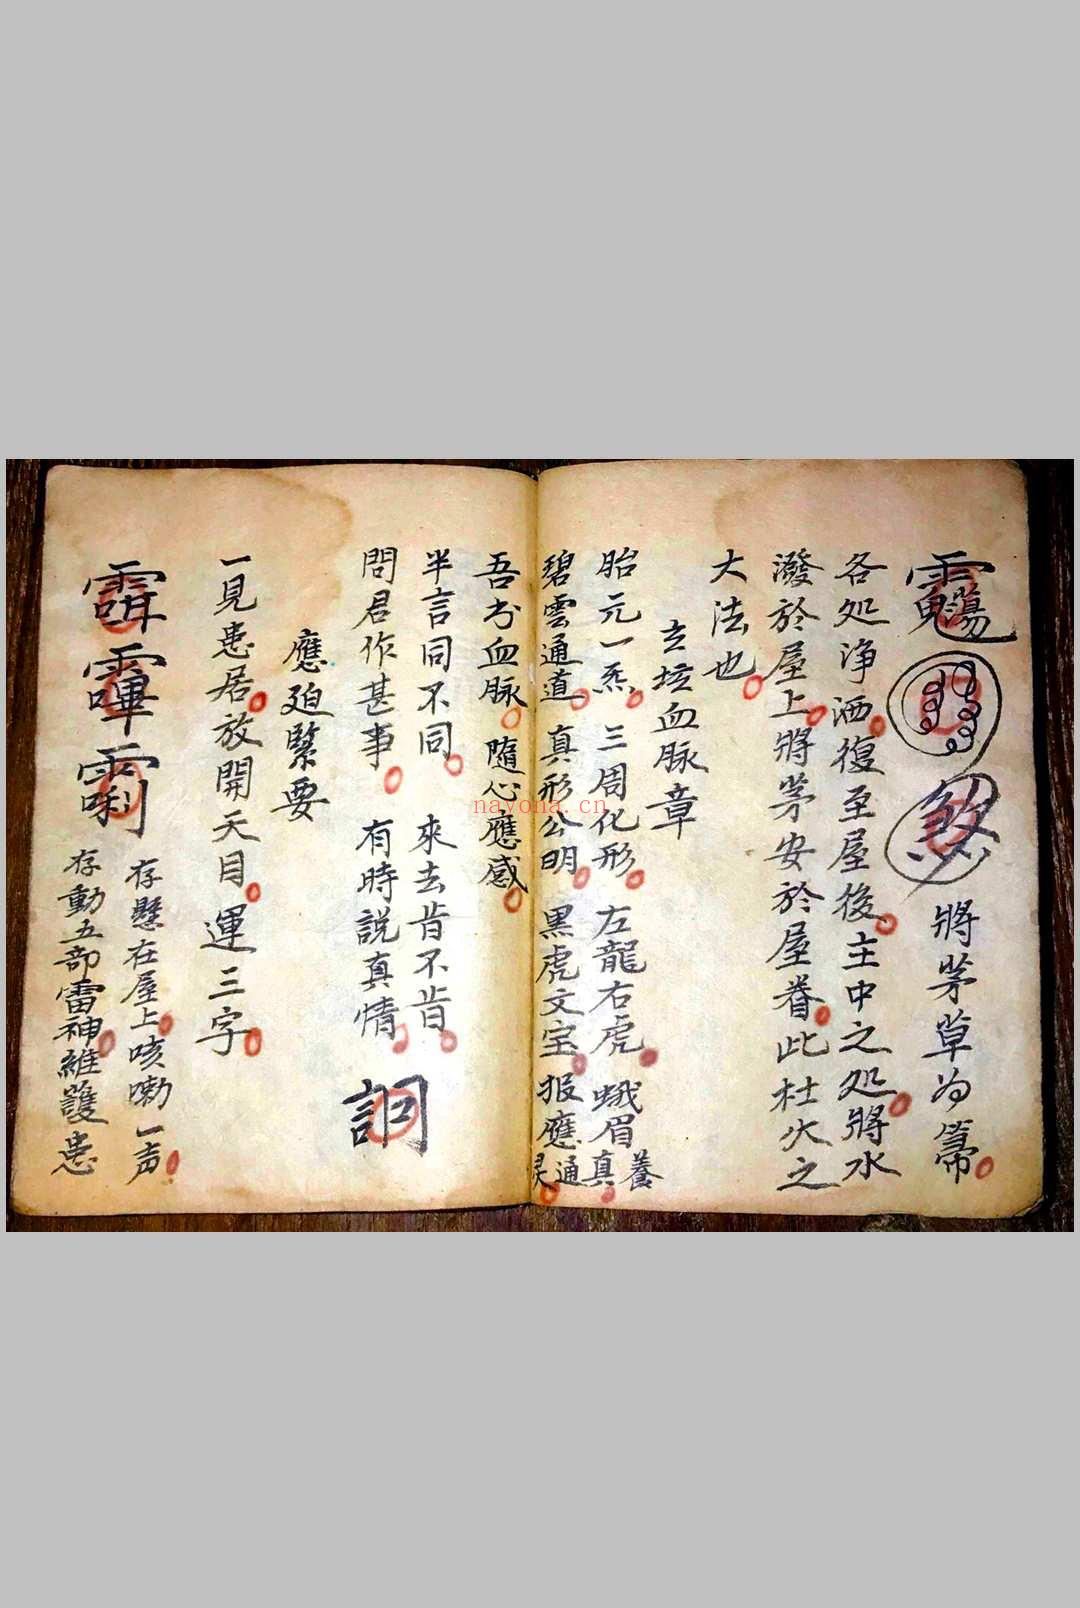 將茅草为箒
各处净洒復至屋後主中之处將水
潑於屋上將茅安於屋眷此杜火之
大法也
玄坛血脉章
胎元一炁 三周化形 左龍右虎 蛾眉養真
碧雲通道 真形公明 黑虎文宝 报應通灵
吾分血脉 隨心應感
半言同不同 來去肯不肯
問君作甚事 有時説真情 詗
應廹緊要
一見患居放開天目運三字
存懸在屋上咳嘞一声
存動五部雷神維護患
nayona.cn